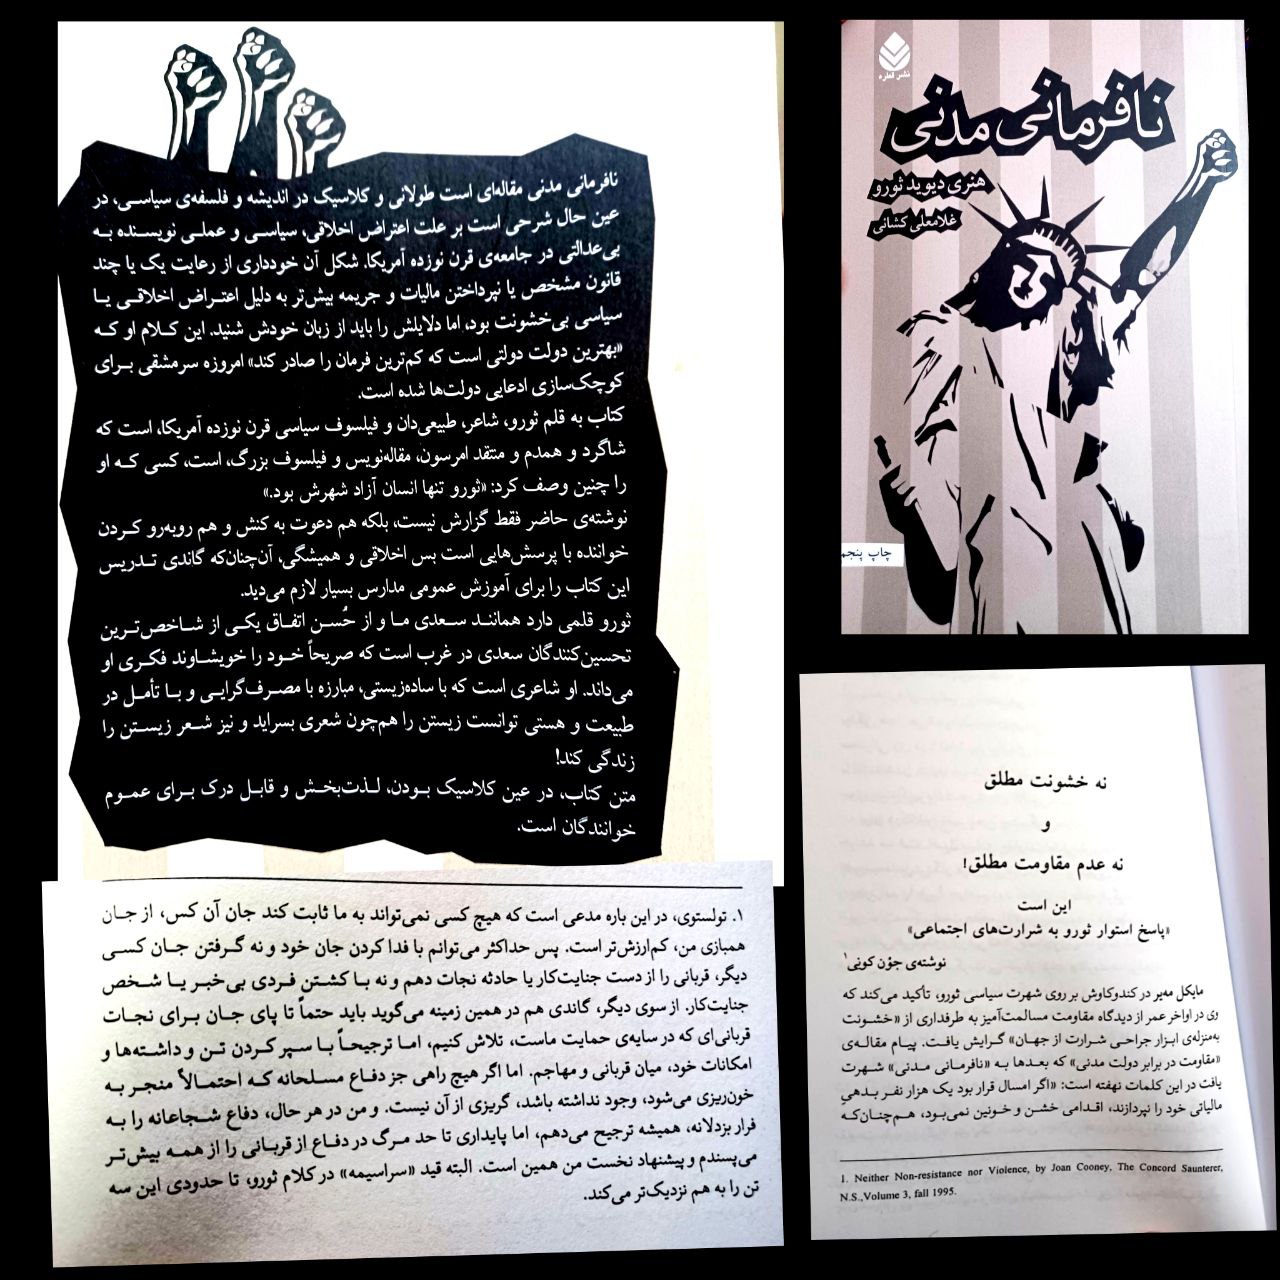 نافرمانی مدنی مقاله‌ای است طولانی و کلاسیک در اندیشه و فلسفه‌ی سیاسی، در
عین حال شرحی است بر علت اعتراض اخلاقی، سیاسی و عملی نویسنده به
بی‌عدالتی در جامعه‌ی قرن نوزده آمریکا. شکل آن خودداری از رعایت یک یا چند
قانون مشخص یا نپرداختن مالیات و جریمه بیش‌تر به دلیل اعتراض اخلاقی یا
سیاسی بی‌خشونت بود، اما دلایلش را باید از زبان خودش شنید. این کلام او که
«بهترین دولت دولتی است که کم‌ترین فرمان را صادر کند» امروزه سرمشقی برای
کوچک‌سازی ادعایی دولت‌ها شده است.
کتاب به قلم ثورو، شاعر، طبیعی‌دان و فیلسوف سیاسی قرن نوزده آمریکا، است که
شاگرد و همدم و منتقد امرسون، مقاله‌نویس و فیلسوف بزرگ، است، کسی که او
را چنین وصف کرد: «ثورو تنها انسان آزاد شهرش بود.»
نوشته‌ی حاضر فقط گزارش نیست، بلکه هم دعوت به کنش و هم روبه‌رو کردن
خواننده با پرسش‌هایی است بس اخلاقی و همیشگی، آن‌چنان‌که گاندی تدریس
این کتاب را برای آموزش عمومی مدارس بسیار لازم می‌دید.
ثورو قلمی دارد همانند سعدی ما و از حُسن اتفاق یکی از شاخص‌ترین
تحسین‌کنندگان سعدی در غرب است که صریحاً خود را خویشاوند فکری او
می‌داند. او شاعری است که با ساده‌زیستی، مبارزه با مصرف‌گرایی و با تأمل در
طبیعت و هستی توانست زیستن را هم‌چون شعری بسراید و نیز شعر زیستن را
زندگی کند!
متن کتاب، در عین کلاسیک بودن، لذت‌بخش و قابل درک برای عموم
خوانندگان است.
۱. تولستوی، در این باره مدعی است که هیچ کسی نمی‌تواند به ما ثابت کند جان آن کس، از جان
همبازی من، کم‌ارزش‌تر است. پس حداکثر می‌توانم با فدا کردن جان خود و نه گرفتن جان کسی
دیگر، قربانی را از دست جنایت‌کار یا حادثه نجات دهم و نه با کشتن فردی بی‌خبر یا شخص
جنایت‌کار. از سوی دیگر، گاندی هم در همین زمینه می‌گوید باید حتماً تا پای جان برای نجات
قربانی‌ای که در سایه‌ی حمایت ماست، تلاش کنیم، اما ترجیحاً با سپر کردن تن و داشته‌ها و
امکانات خود، میان قربانی و مهاجم. اما اگر هیچ راهی جز دفاع مسلحانه که احتمالاً منجر به
خون‌ریزی می‌شود، وجود نداشته باشد، گریزی از آن نیست. و من در هر حال، دفاع شجاعانه را به
فرار بزدلانه، همیشه ترجیح می‌دهم، اما پایداری تا حد مرگ در دفاع از قربانی را از همه بیش‌تر
می‌پسندم و پیشنهاد نخست من همین است. البته قید «سراسیمه» در کلام ثورو، تا حدودی این سه
تن را به هم نزدیک‌تر می‌کند.
نشر قطره
نافرمانی مدنی
هنری دیوید ثورو
غلامعلی کشانی
چاپ پنجم
نه خشونت مطلق
و
نه عدم مقاومت مطلق!
این است
«پاسخ استوار ثورو به شرارت‌های اجتماعی»
نوشته‌ی جوْن کونی۱
مایکل مه‌یر در کندوکاوش بر روی شهرت سیاسی ثورو، تأکید می‌کند که
وی در اواخر عمر از دیدگاه مقاومت مسالمت‌آمیز به طرفداری از «خشونت
به‌منزله‌ی ابزار جراحی شرارت از جهان» گرایش یافت. پیام مقاله‌ی
«مقاومت در برابر دولت مدنی» که بعدها به «نافرمانی مدنی» شهرت
یافت در این کلمات نهفته است: «اگر امسال قرار بود یک هزار نفر بدهیِ
مالیاتی خود را نپردازند، اقدامی خشن و خونین نمی‌بود، هم‌چنان‌که
1. Neither Non-resistance nor Violence, by Joan Cooney, The Concord Saunterer,
N.S.,Volume 3, fall 1995.